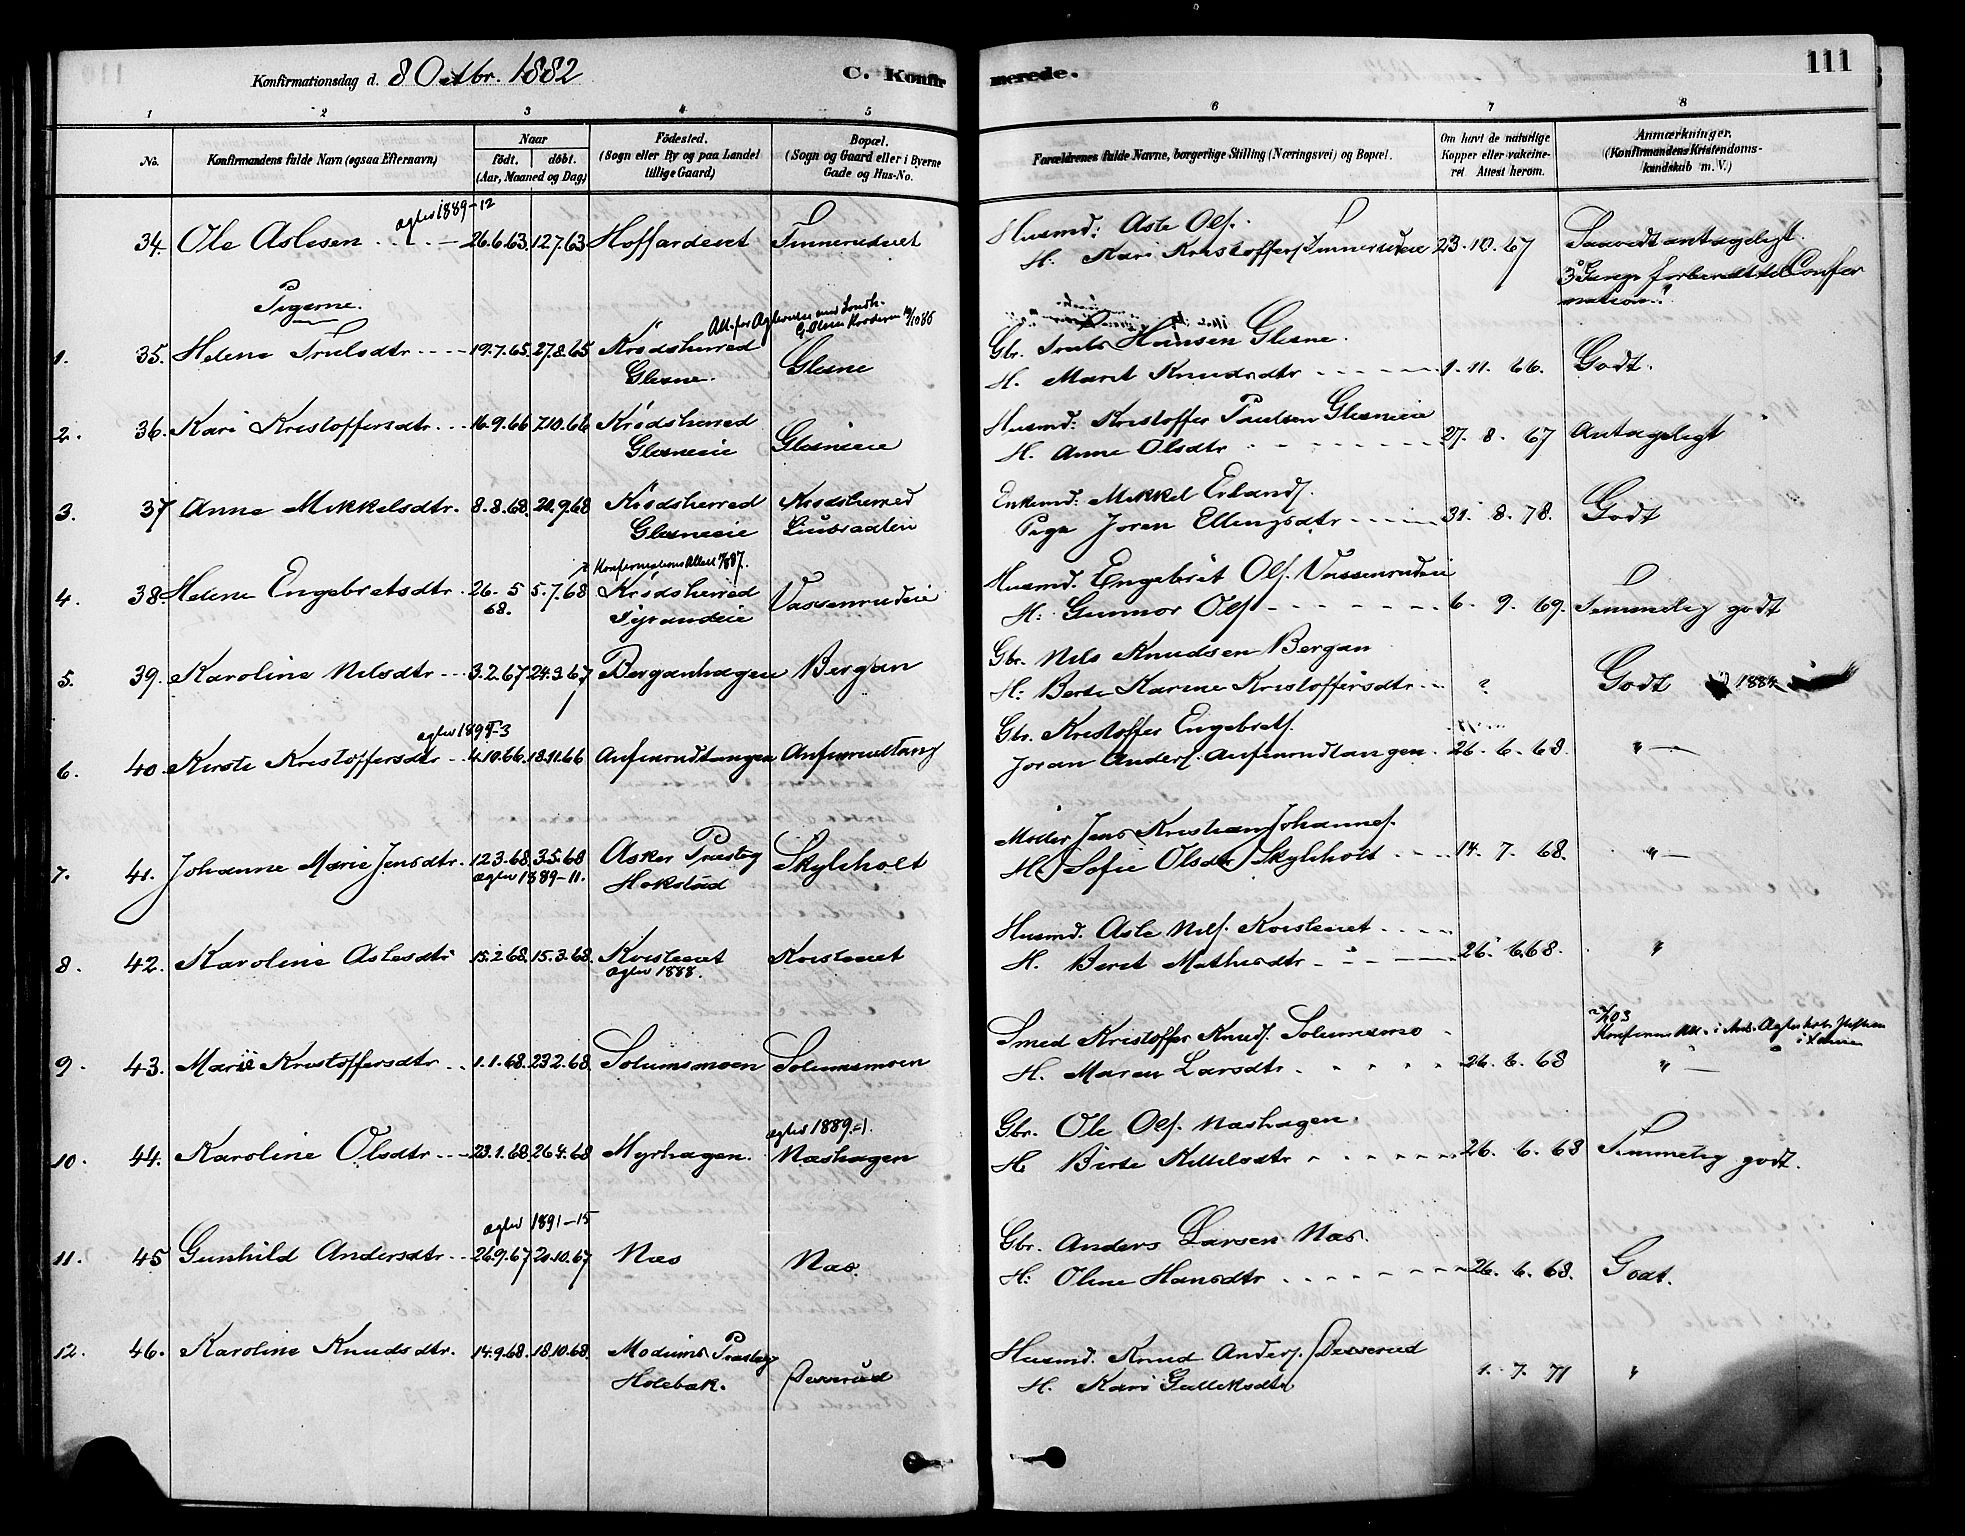 Konfirmationsdag d. 8 Octbr. 1882 C. Konfirmerede. 111
1 2 3 4 5 6 7 8
No. Konfirmandens fulde Navn (ogsaa Efternavn) Naar født. døbt. (Aar, Maaned og Dag) Fødested. (Sogn eller By og paa Landet tillige Gaard) Bopæl. (Sogn og Gaard eller i Byerne Gade og Hus-No. Forældrenes fulde Navne, borgerlige Stilling (Næringsvei) og Bopæl. Om havt de naturlige Kopper eller vakcineret. Attest herom. Anmærkninger. (Konfirmandens Kristendomskundskab m. V.)
ægtev 1889-12
34. Ole Aslesen 26.6.63. 12.7.63 Hoffardeiet Tinnerudeiet Husmd: Asle Ols. 23.10.67 Saavidt antageligt.
H. Kari Kristoffers. Tinnerudeie
3 Gange forberedt til Confirmation.
Pigerne.
1. 35. Helene Trulsdtr 19.7.65 27.8.65 Krødsherred Glesne Gbr. Truls Hansen Glesne.
Glesne. H. Marit Knudsdtr 1.11.66. Godt.
2. 36. Kari Kristoffersdtr 16.9.66 7.10.66 Krødsherred Glesneeie Husmd: Kristoffer Paulsen Glesneeie
Glesneeie H. Anne Olsdtr 27.8.67 Antageligt
3. 37 Anne Mikkelsdtr. 8.8.68. 20.9.68 Krødsherred Krødsherred Enkemd: Mikkel Erlands.
Glesneeie Pige Joren Ellingsdtr 31.8.78. Godt
Konfirmations Attest 7/887.
4. 38. Helene Engebretsdtr. 26.5 68. 5.7.68 Krødsherred Vassenrudeie Husmd. Engebret Ols. Vassenrudeie
H. Gunnor Ols 6.9.69. Temmelig godt
5. 39. Karoline Nilsdtr 3.2.67 24.3.67 Berganhagen Bergan Gbr. Nils Knudsen Bergan
H. Berte Karine Kristoffersdtr ? Godt 1884
ægtev 1891-3
6. 40. Kirsti Kristoffersdtr 4.10.66. 18.11.66 Anfinrudtangen Anfinrudtang Gbr. Kristoffer Engebrets.
Joran Anders. Anfinrudtangen 26.6.68. "
7. 41. Johanne Marie Jensdtr. 12.3.68. 3.5.68 Asker Præsteg Skyleholt Møller Jens Kristian Johannes.
ægtev 1889-11. Hokstad H. Sofie Olsdtr Skyleholt 14.7.68. "
8. 42. Karoline Aslesdtr 15.2.68. 15.3.68. Kvisleeiet Kvisleeiet Husmd. Asle Nils. Kvisleeiet
ægtev 1888. H. Berit Mathisdtr 26.6.68. "
9. 43. Marie Kristoffersdtr 1.1.68. 23.2.68. Solumsmoen Solumsmoen Smed Kristoffer Knuds. Solumsmo
H. Maren Larsdtr 26.6.68 "
ægtev 1889-1.
10. 44. Karoline Olsdtr 23.1.68. 26.4.68 Myrhagen. Næshagen Gbr. Ole Ols. Næshagen.
H. Birte Kittelsdtr 26.6.68 Temmelig godt.
ægtev 1891-15
11. 45 Gunhild Andersdtr 26.9.67 20.10.67 Næs Næs. Gbr. Anders Larsen Næs.
H. Oline Hansdtr 26.6.68. Godt.
12. 46. Karoline Knudsdtr. 14.9.68. 18.10.68. Modums Præsteg Husmd. Knud Anders.
Holebæk. H. Kari Gulleksdtr 1.7.71 "